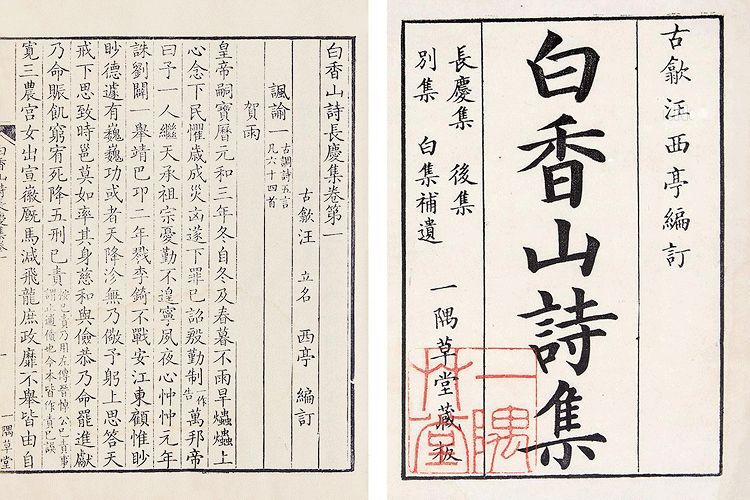 古歙汪西亭編訂
白香山詩集
長慶集 後集
別集 白集補遺
一隅草堂藏板
一隅草堂
白香山詩長慶集卷第一
古歙汪 立名 西亭 編訂
諷諭一 古調詩五言
凡六十四首
賀雨
皇帝嗣寶曆元和三年冬自冬及春暮不雨旱爞爞上
心念下民懼歲成災凶遂下罪己詔殷勤制一作告萬邦帝
曰予一人繼天承祖宗憂勤不遑寧夙夜心忡忡元年
誅劉闢一舉靖巴邛二年戮李錡不戰安江東顧惟眇
眇德遽有巍巍功或者天降沴無乃儆予躬上思答天
戒下思致時邕莫如率其身慈和與儉恭乃命罷進獻
乃命賑飢窮宥死降五刑已責
已責乃用左傳晉悼公已責事
謂止逋債也今本皆作責己誤
寬三農宮女出宣徽廄馬減飛龍庶政靡不舉皆由自
白香山詩長慶集卷一
一隅草堂